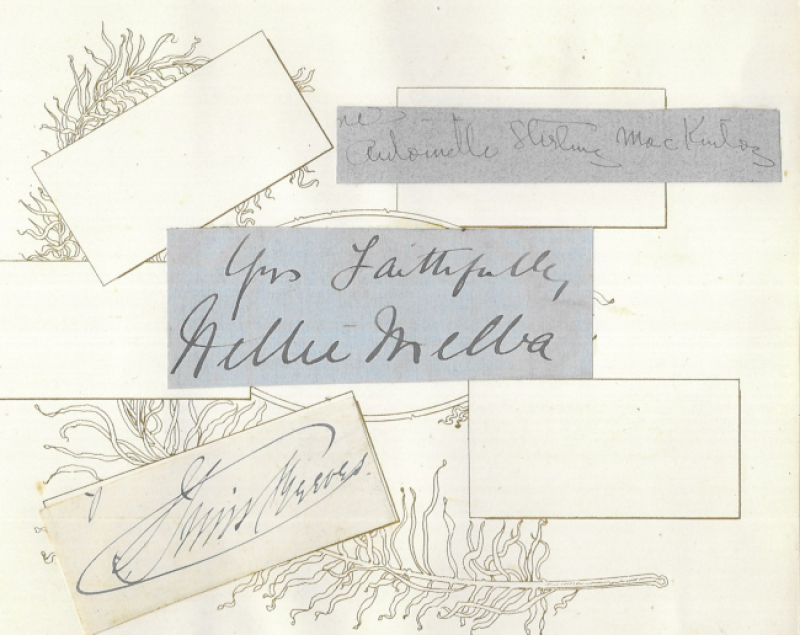 Antoinette Sterling MacKinlay
Yrs Faithfully
Nellie Melba
Sims Reeves.